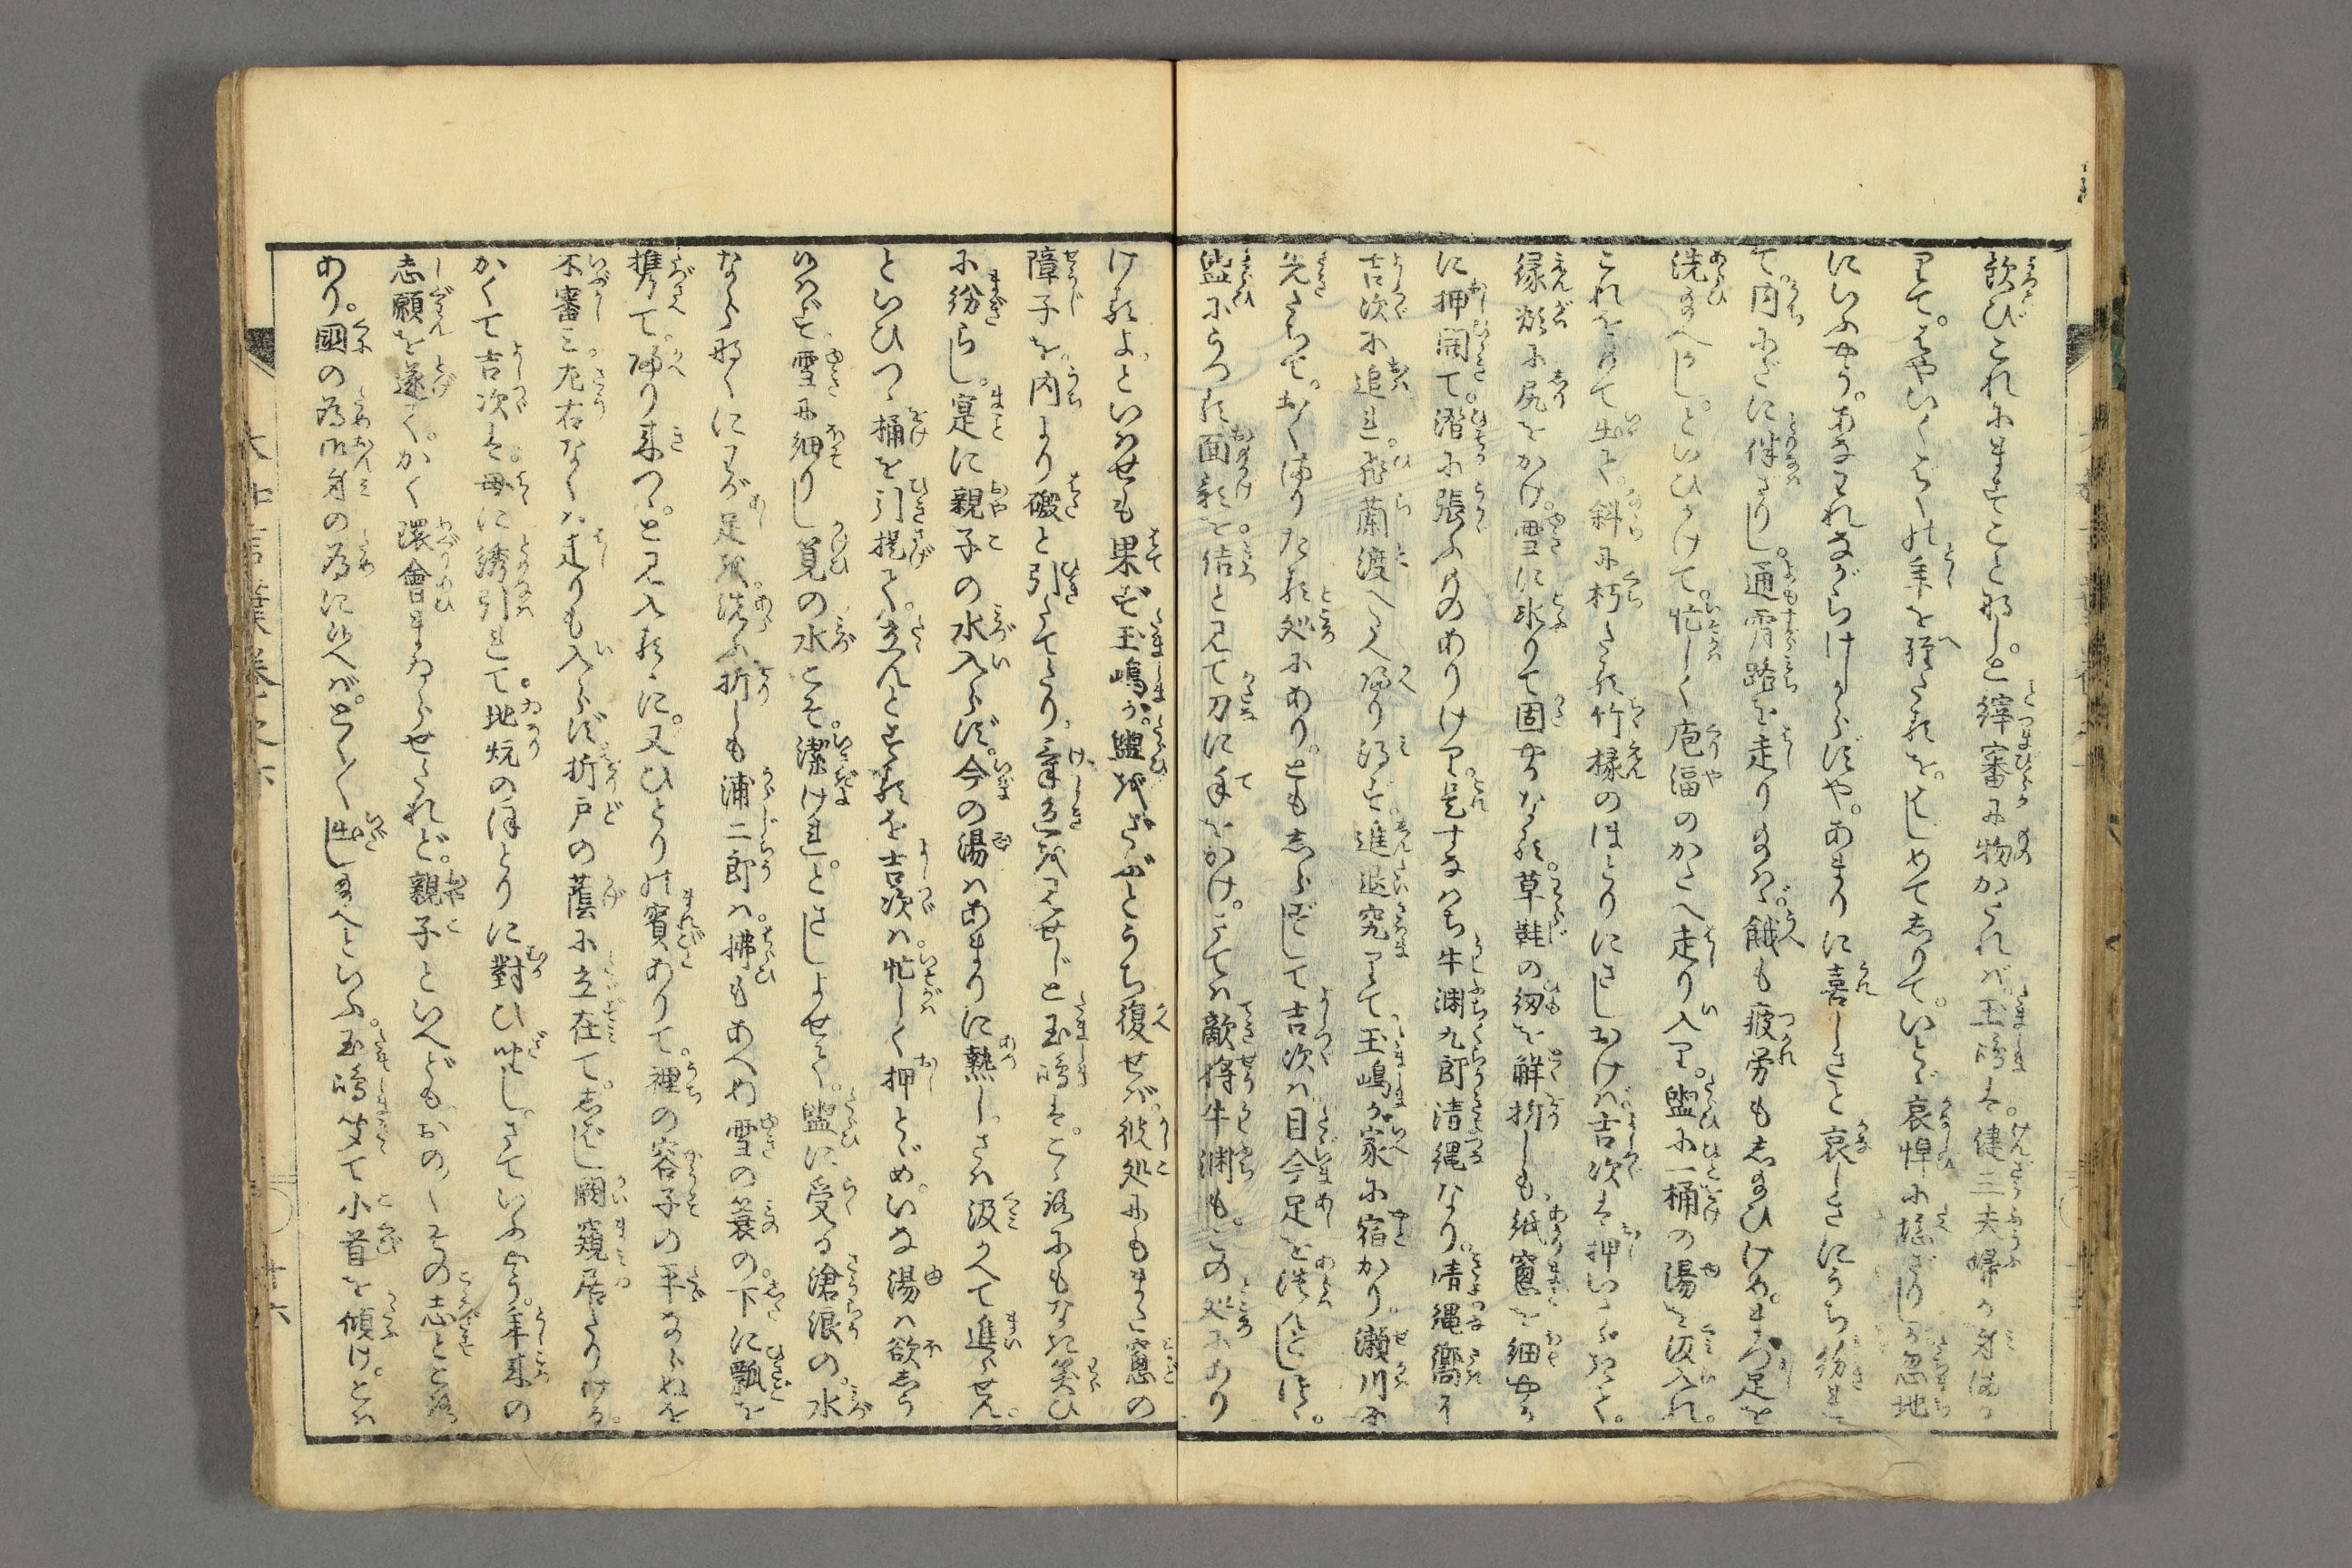 歓びこれにますこと那し。と縡審に物がたれば玉嶋は。健三夫婦が身まか
りて。はやいくばくの年を歴たるを。はじめてしりて。いとゞ哀悼に堪ざりしが忽地
にいふやう。あなわれながらけしからずや。あまりに喜しさと哀しさにうち紛れ
て。内にだに伴ざりし。通宵路を走り給はゞ。餓も疲労もし給ひけめ。まづ足を
洗給へかし。といひかけて。忙しく庖湢のかたへ走り入り。盥に一桶の湯を汲入れ。
これをもて出て。斜に朽たる竹椽のほとりにさしおけば。吉次は押いたゞきて。
縁頬に尻をかけ。雪に氷りて固やかなる。草鞋の紐を解折しも。紙窓を細やか
に押開て。潜に張ふものありけり。是すなはち牛渕九郎清縄なり。清縄嚮に
吉次に追れ。飛蘭渡へたえ帰り得ず。進退究りて玉嶋が家に宿かり。瀬川に
先たちて。おくまりたる処にあり。ともしらずして吉次は目今足を洗んとしつゝ。
盥にうつる面影を。佶と見て刀に手をかけ。さては敵将牛渕も。この処にあり
けるよ。といはせも果ず玉嶋が。盥をざぶとうち復せば。彼処にもまた窓の
障子を。内より礑と引たてたり。さる気色を見せじと玉嶋は。こゝろにもなき笑ひ
に紛らし。寔に親子の水入らず。今の湯はあまりに熱し。さは汲かへて進らせん。
といひつゝ桶を引提て。立んとするを吉次は。忙しく押とゞめ。いな湯は欲しう
候はず。雪に細りし筧の水こそ。潔けれ。とさしよせて。盥に受る滄浪の。水
ならなくにわが足を。洗ふ折しも浦二郎は。拂もあへぬ雪の簑の。下に瓢を
携て。帰り来つ。と見入るゝに。又ひとりの賓ありて。裡の容子の平ならぬを
不審み。左右なくは走りも入らず。折戸の蔭に立在て。しばし闚窺居たりける。
かくて吉次は母に誘引れて。地炕のほとりに對ひ坐し。さていふやう。年来の
志願を遂て。かく環會まゐらせたれど。親子といへどもおの〱その志こゝろ
あり。國の為御身の為に候へば。とく〱出しまへといふ。玉嶋聞て小首を傾け。とは